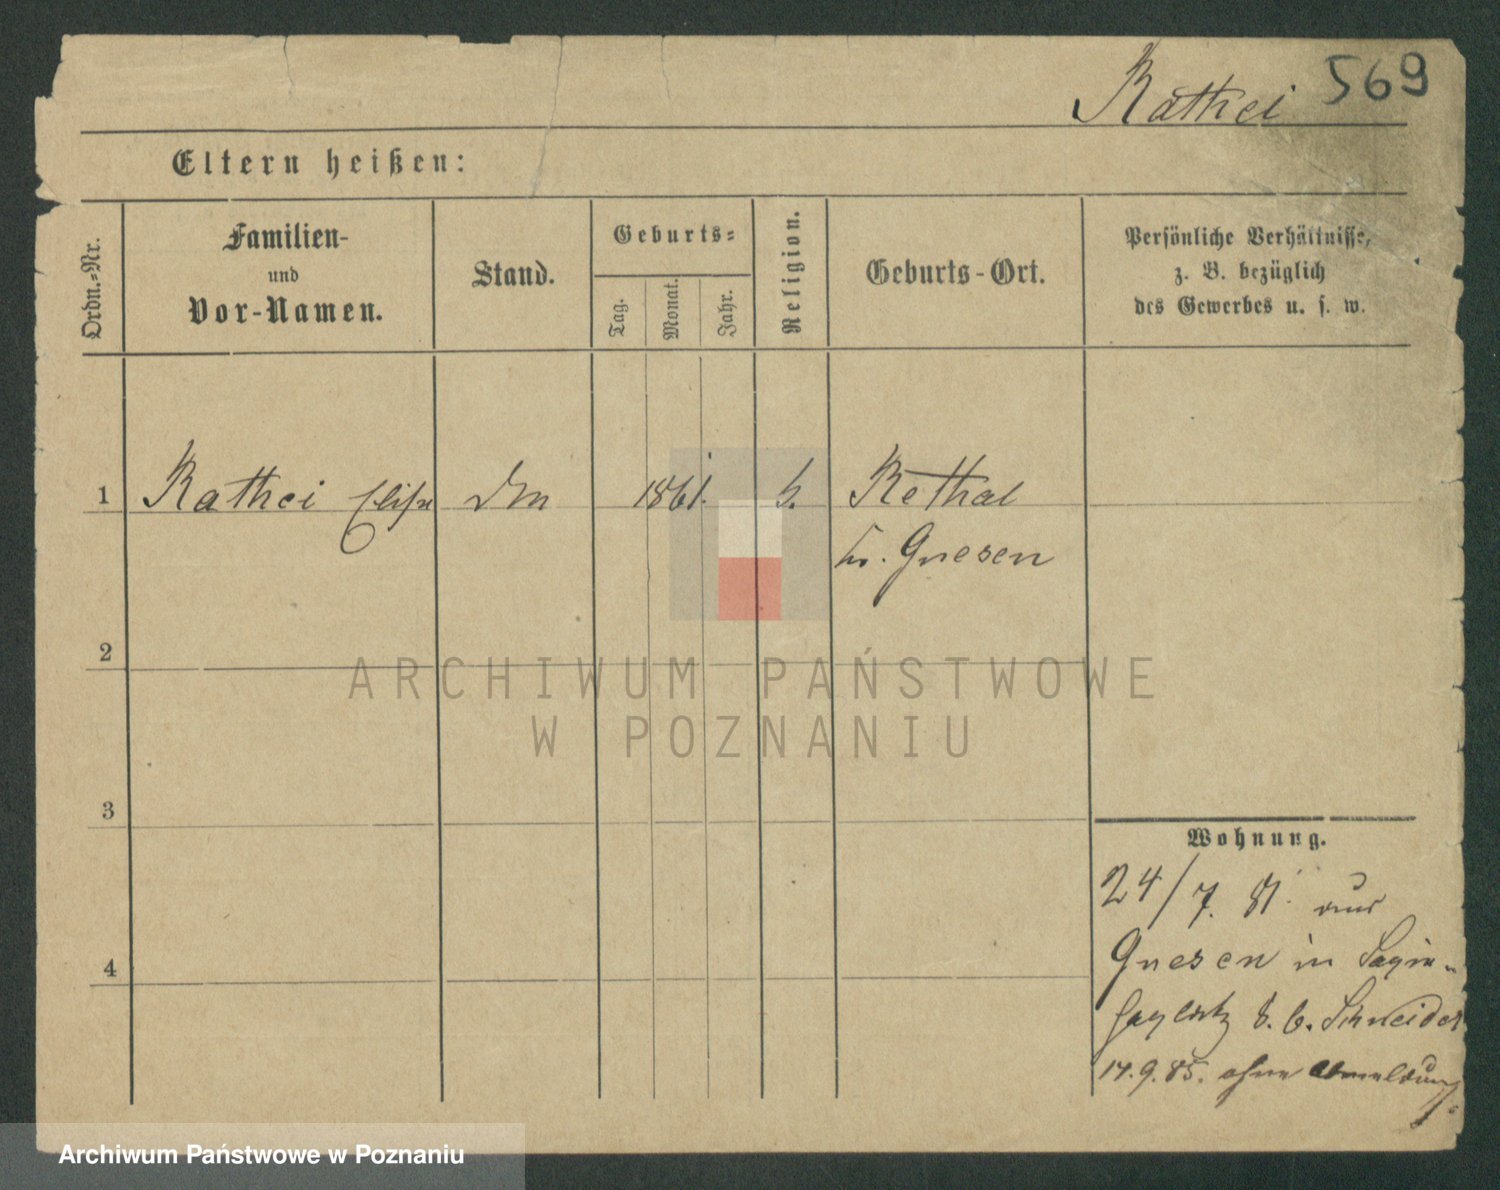 Rathei 569
Eltern heißen:
Ordn.-Nr.
Familien-
und
Vor-Namen.
Stand.
Geburts-
Tag.
Monat.
Jahr.
Religion.
Geburts-Ort.
Persönliche Verhältnisse,
z. B. bezüglich
des Gewerbes u. s. w.
1 Rathei Elise 1861. Rethal
Kr. Gnesen
2
3
4
Wohnung.
24/7. 81. aus
Gnesen in
8. b. Schneider
17.9.85. ohne Abmeldung
ARCHIWUM PAŃSTWOWE
W POZNANIU
Archiwum Państwowe w Poznaniu